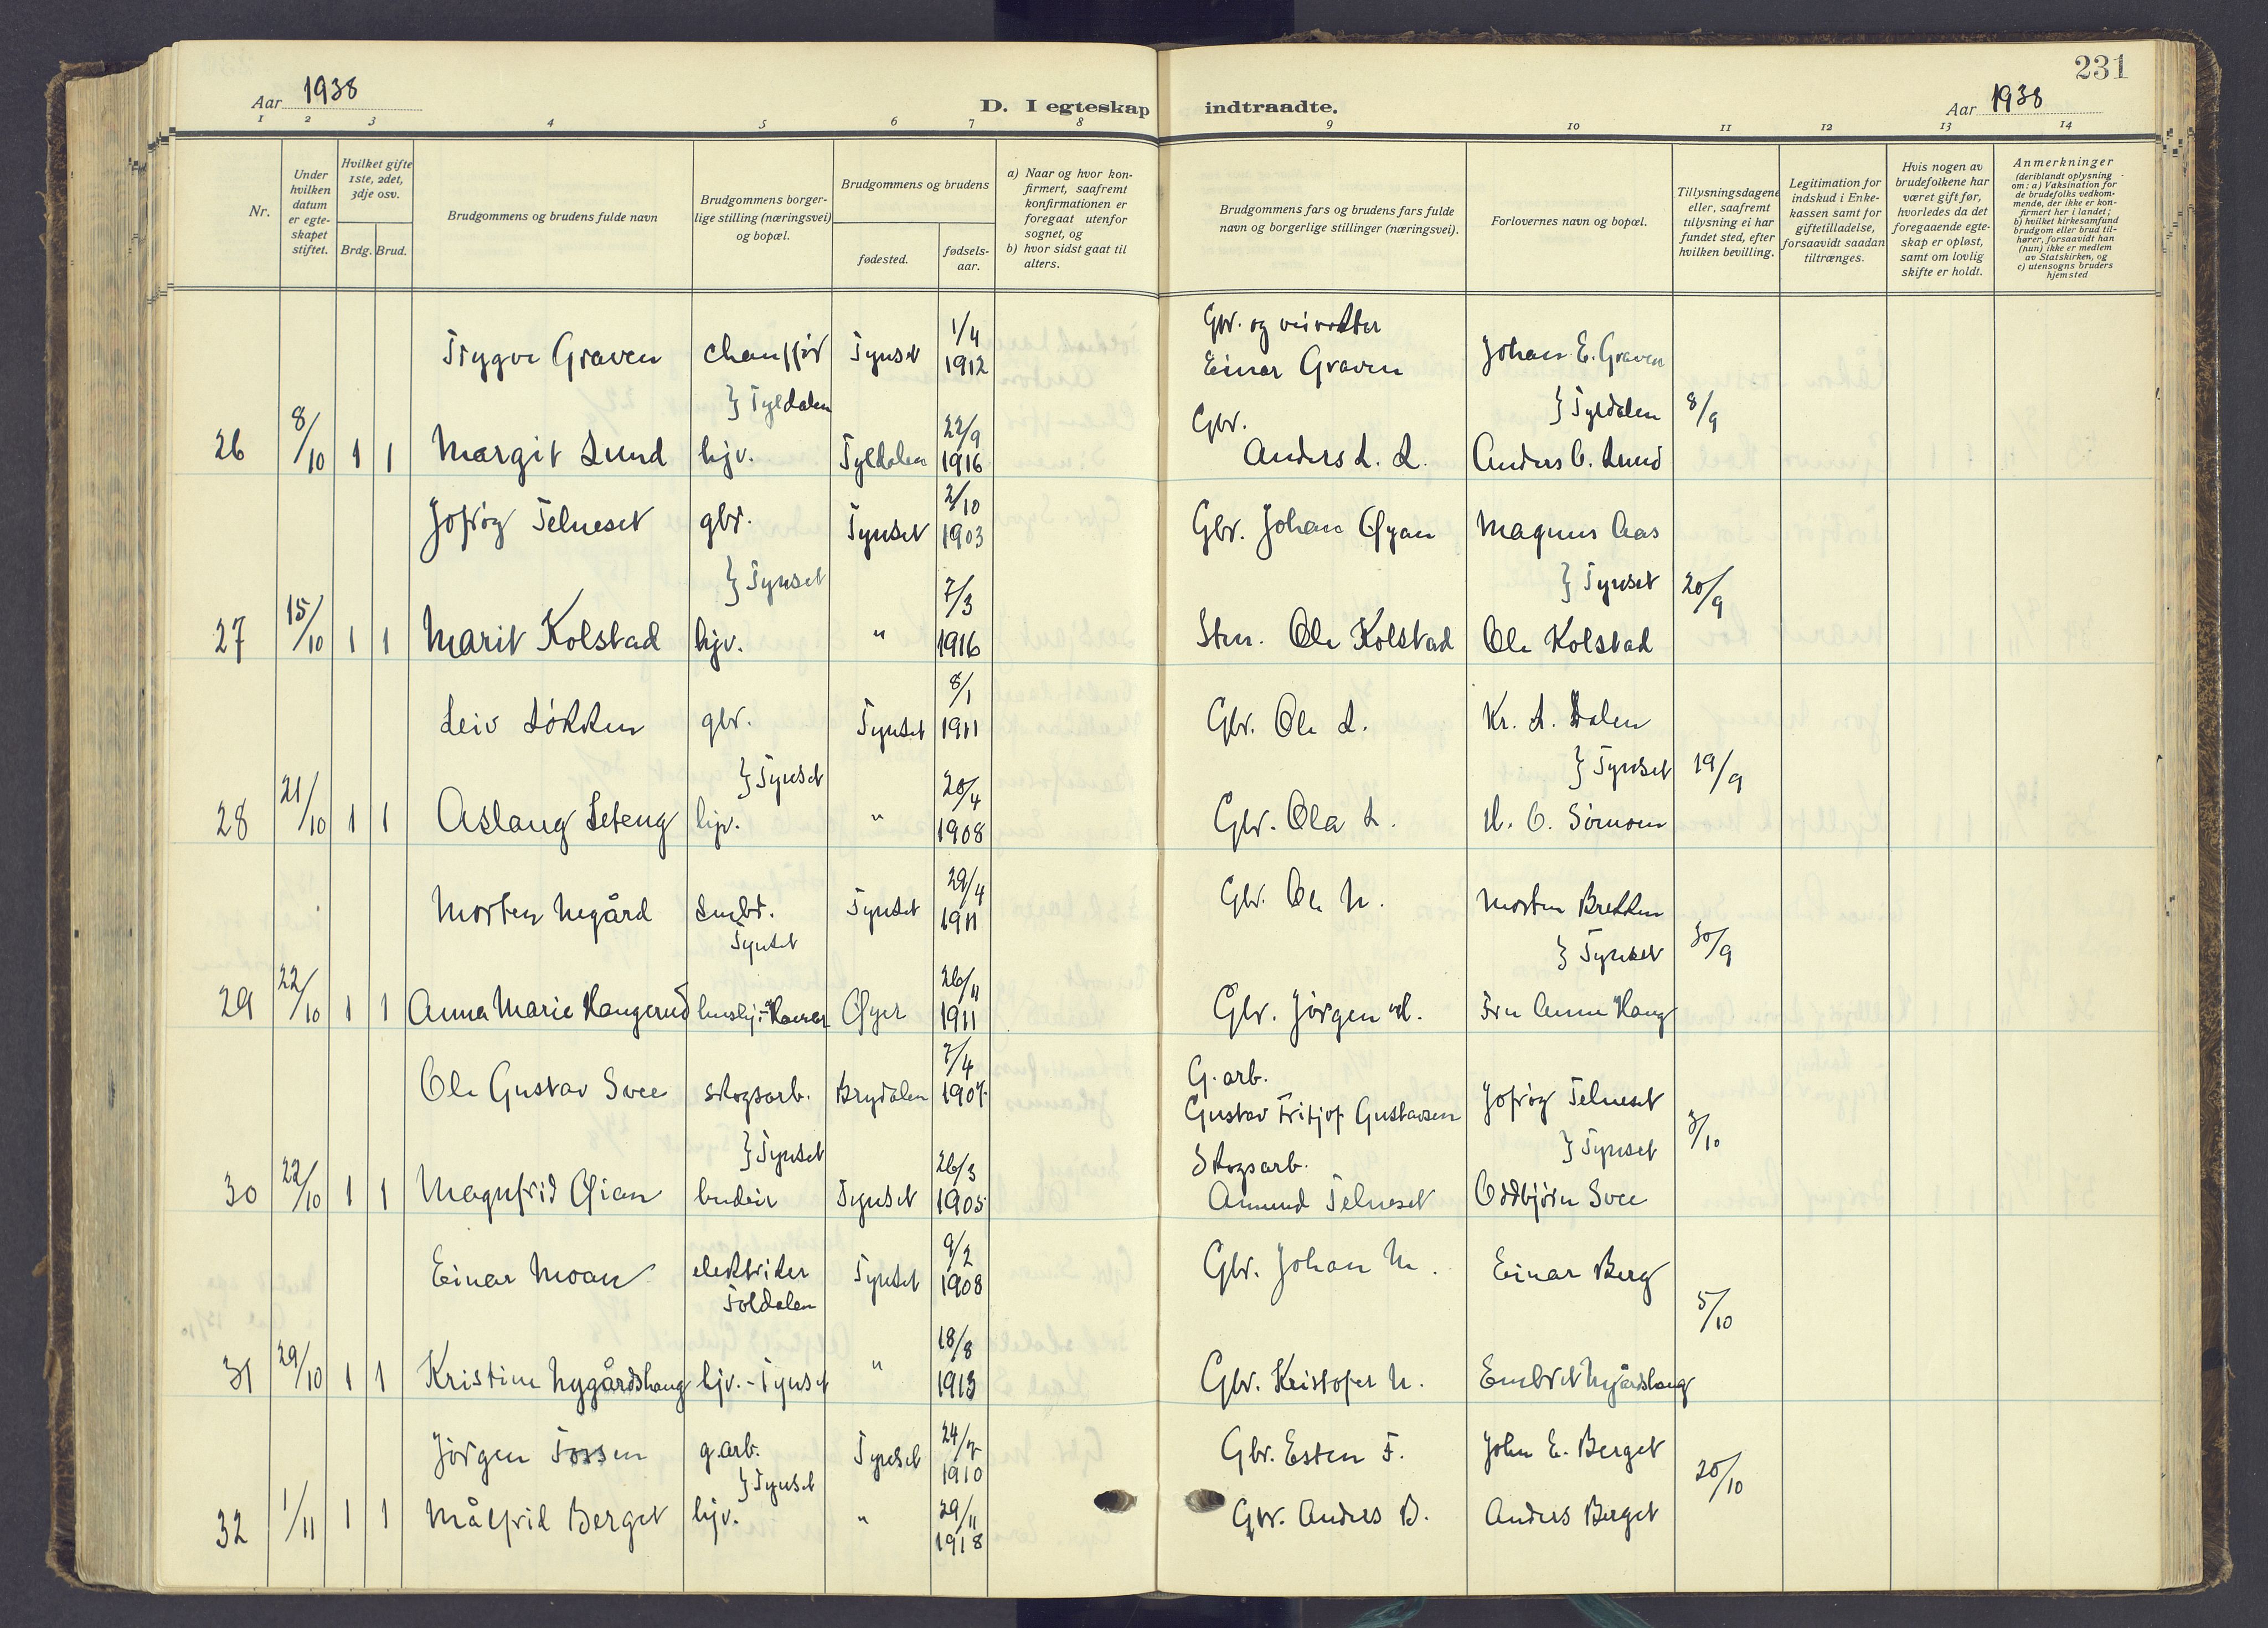 231
Aar 1938
D. I egteskap indtraadte.
Aar 1938
1 2 3 4 5 6 7 8 9 10 11 12 13 14
Nr.
Under hvilken datum er egte-skapet stiftet.
Hvilket gifte 1ste, 2det, 3dje osv.
Brdg. Brud.
Brudgommens og brudens fulde navn
Brudgommens borger-lige stilling (næringsvei) og bopæl.
Brudgommens og brudens
fødested.
fødsels-aar.
a) Naar og hvor kon-firmert, saafremt konfirmationen er foregaat utenfor sognet, og
b) hvor sidst gaat til alters.
Brudgommens fars og brudens fars fulde navn og borgerlige stillinger (næringsvei).
Forlovernes navn og bopæl.
Tillysningsdagene eller, saafremt tillysning ei har fundet sted, efter hvilken bevilling.
Legitimation for indskud i Enke-kassen samt for giftetilladelse, forsaavidt saadan tiltrænges.
Hvis nogen av brudefolkene har været gift før, hvorledes da det foregaaende egte-skap er opløst, samt om lovlig skifte er holdt.
Anmerkninger (deriblandt oplysning om: a) Vaksination for de brudefolks vedkom-mende, der ikke er kon-firmert her i landet; b) hvilket kirkesamfund brudgom eller brud til-hører, forsaavidt han (hun) ikke er medlem av Statskirken, og c) utensogns bruders hjemsted
Trygve Graven chauffør Tynset 1/4 1912 Gbr. og veivokter Einar Graven Johan E. Graven
} Tyldalen } Tyldalen 8/9
26 8/10 1 1 Margit Lund hjv. Tyldalen 22/9 1916 Gbr. Anders L. L. Anders O. Lund
Jofrøg Telneset gbr. Tynset 2/10 1903 Gbr. Johan Øyan Magnus Aas
} Tynset } Tynset 20/9
27 15/10 1 1 Marit Kolstad hjv. " 7/3 1916 Stm. Ole Kolstad Ole Kolstad
Leiv Løkken gbr. Tynset 8/1 1911 Gbr. Ole L. Kr. L. Dalen
} Tynset } Tynset 19/9
28 21/10 1 1 Aslaug Leteng hjv. " 20/4 1908 Gbr. Ola L. H. O. Sørmoen
Morten Negård smbr. Tynset 29/4 1911 Gbr. Ole N. Morten Brekken
Tynset } Tynset 30/9
29 22/10 1 1 Anna Marie Haugerud hushj. - Hamar Øyer 26/11 1911 Gbr. Jørgen H. Fru Anne Haug
Ole Gustav Svee skogsarb. Brydalen 7/4 1907 G.arb. Gustav Fritjof Gustavsen Jofrøg Telneset
} Tynset } Tynset 3/10
30 22/10 1 1 Magnfrid Øian budeie Tynset 26/3 1905 Skogsarb. Amund Telneset Oddbjørn Svee
Einar Moan elektriker Tynset 9/2 1908 Gbr. Johan M. Einar Berg
Foldalen 5/10
31 29/10 1 1 Kristine Nygårdshaug hjv. - Tynset " 18/8 1913 Gbr. Kristofer N. Embret Nygårdshaug
Jørgen Fossen g.arb. Tynset 24/7 1910 Gbr. Esten F. John E. Berget
} Tynset 20/10
32 1/11 1 1 Målfrid Berget hjv. " 29/11 1918 Gbr. Anders B. Anders Berget